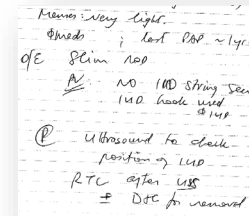 Menses: very light.
∅meds ; last PAP ~ 1yr
O/E Slim NAD
PV NO IUD string See
IUD hook used
IUD
(P) Ultrasound to check
position of IUD
RTC after U/S
± D&C for removal